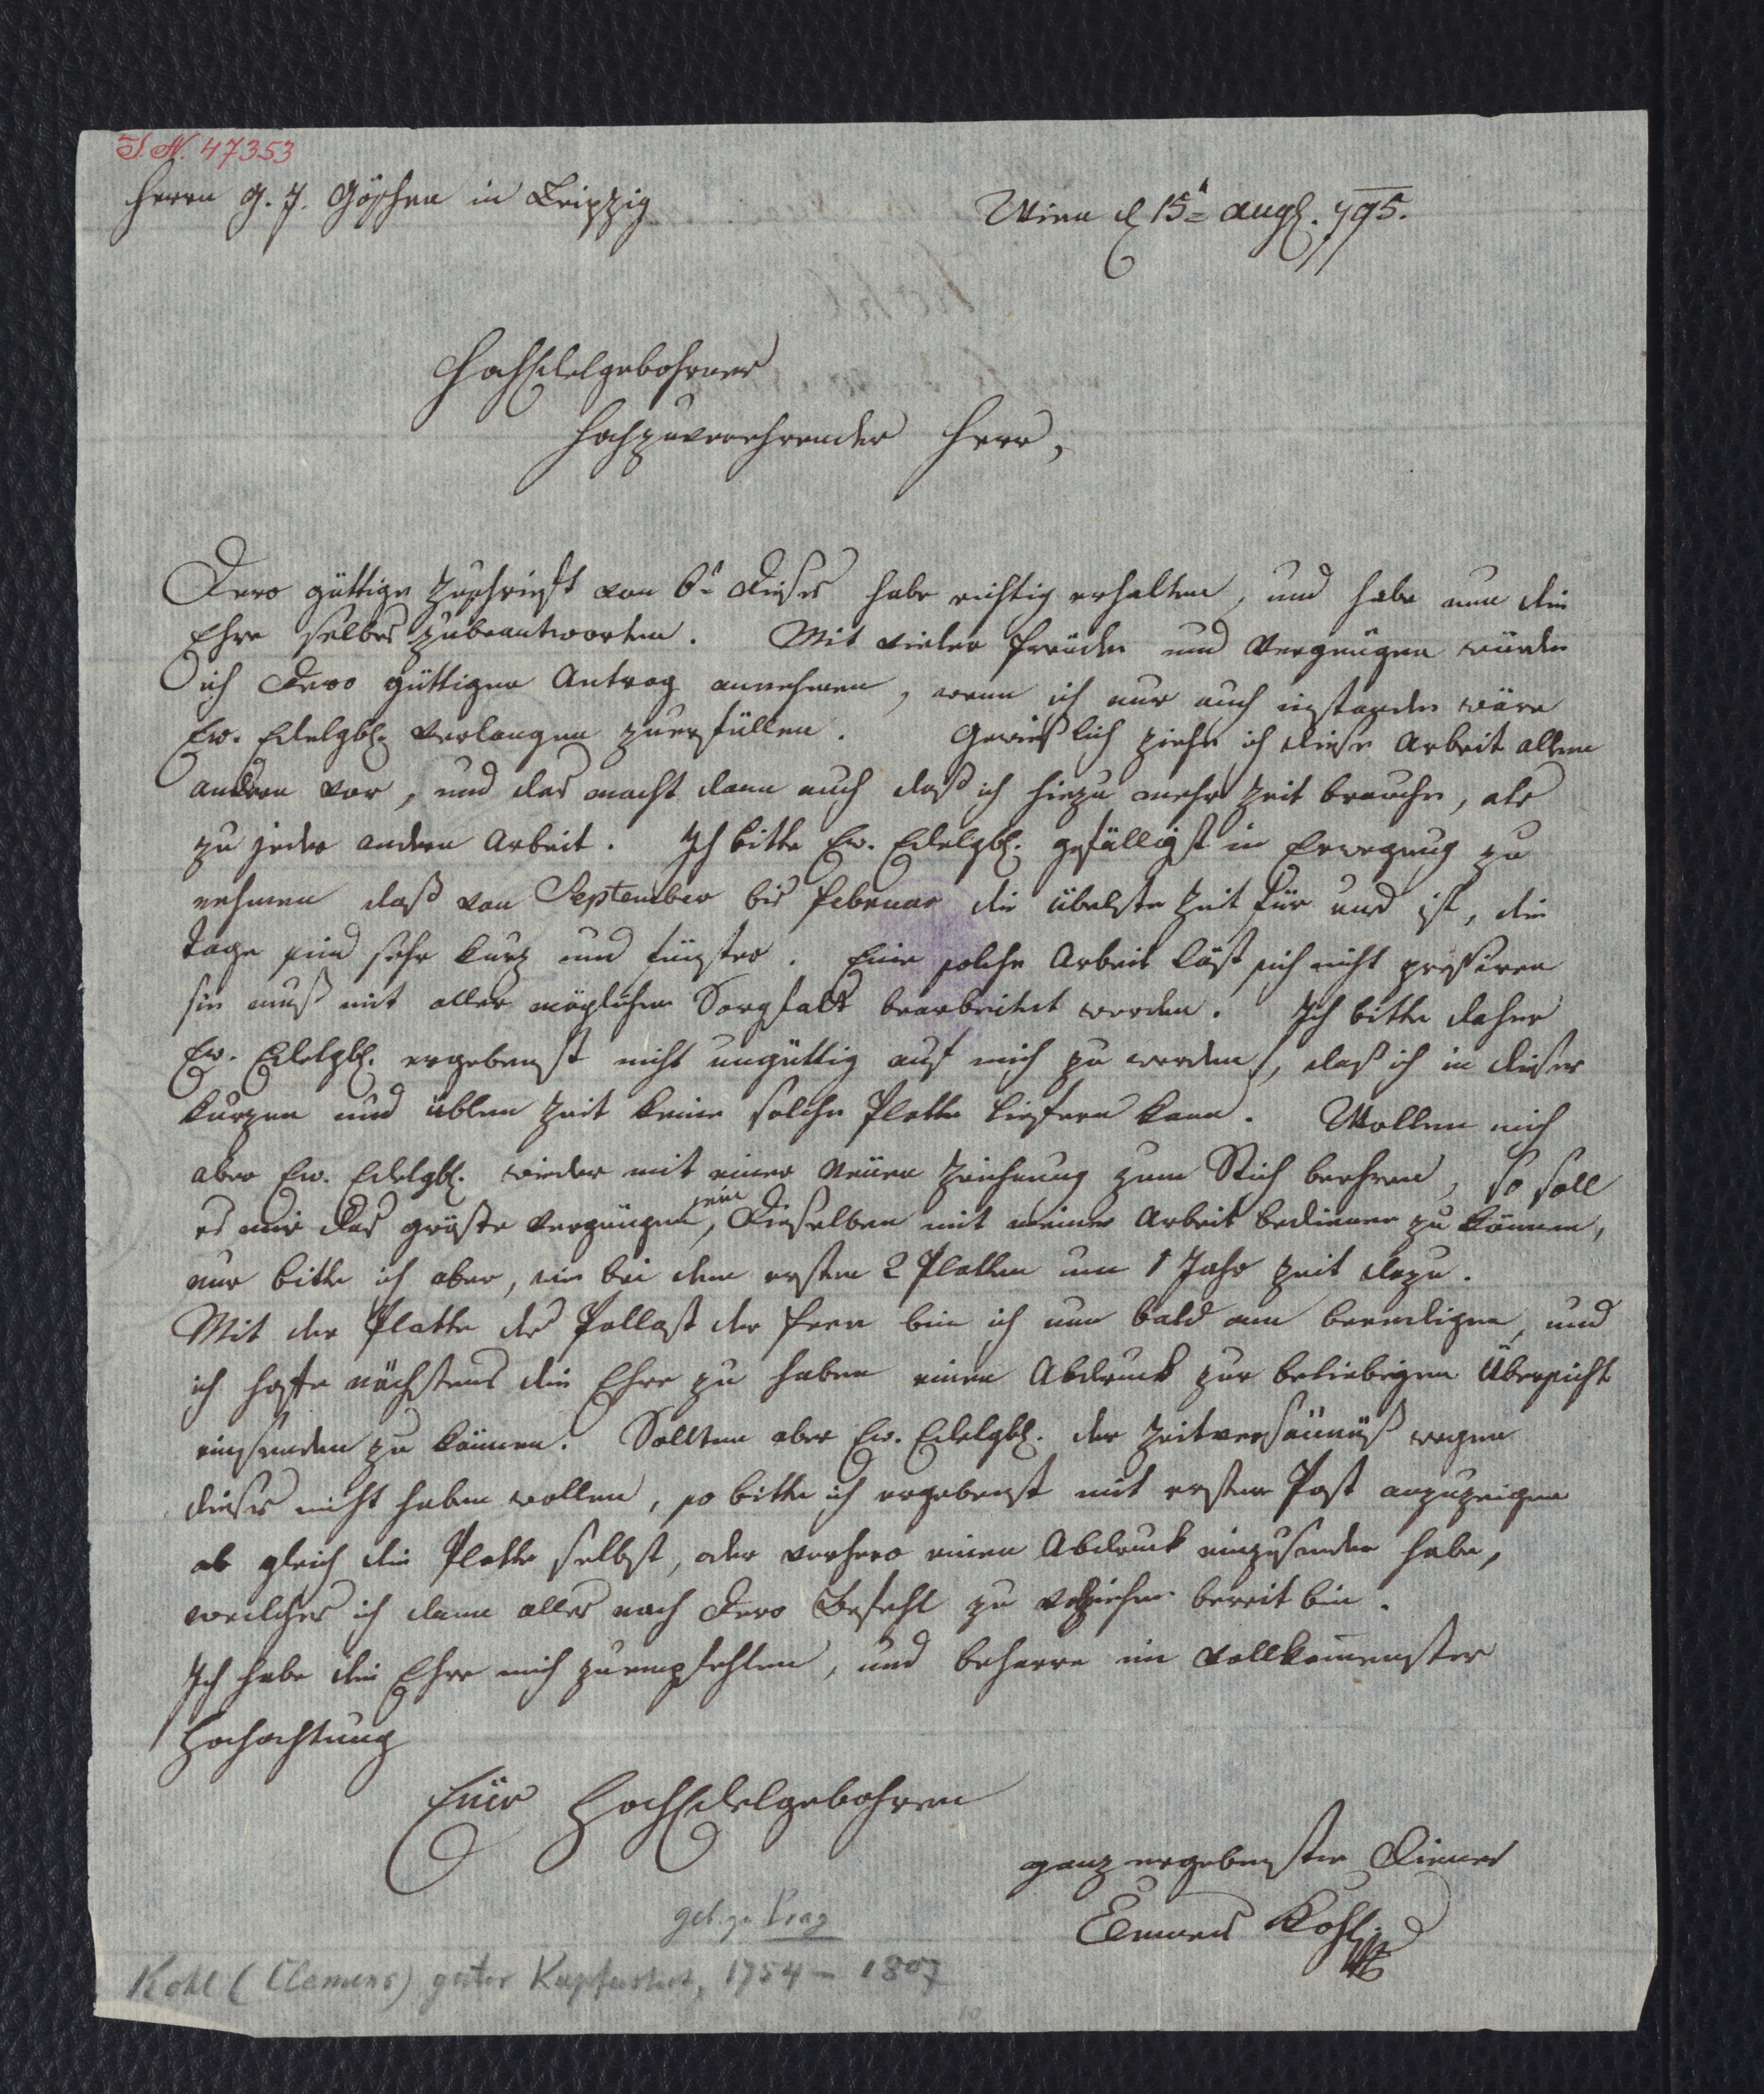 I. N. 47353
Herrn G. J. Göschen in Leipzig
Wien d 15t Augs. 795.
HochEdelgebohrner
Hochzuverehrender Herr,
Dero güttige Zuschrieft von 6t dieses habe richtig erhalten, und habe nun die
Ehre selbes zubeantworten. Mit vieler Freude und Vergnügen würde
ich Dero güttigen Antrag annehmen, wenn ich nur auch instande wäre
Ew. Edelgbh. Verlangen zuerfüllen. Gewießlich ziehe ich diese Arbeit allen
andern vor, und das macht dann auch daß ich hiezu mehr Zeit brauche, als
zu jeder andern Arbeit. Ich bitte Ew. Edelgbh. gefälligst in Erwegung zu
nehmen daß von September bis Februar die übelste Zeit für uns ist, die
Tage sind sehr kurz und finster. Eine solche Arbeit läst sich nicht presiren
sie muß mit aller möglichen Sorgfalt bearbeitet werden. Ich bitte daher
Ew. Edelgbh. ergebenst nicht ungüttig auf mich zu werden, daß ich in dieser
kurzen und üblen Zeit keine solche Platte liefern kann. Wollen mich
aber Ew. Edelgbh. wieder mit einer neüen Zeichnung zum Stich beehren, so soll
es mir das gröste Vergnügen sein, Dieselben mit meiner Arbeit bedienen zu können,
nur bitte ich aber, wie bei den ersten 2 Platten um 1 Jahr Zeit dazu.
Mit der Platte des Pallast der Feen bin ich nun bald am beendigen, und
ich hoffe nächstens die Ehre zu haben einen Abdruck zur beliebigen Übersicht
einsenden zu können. Sollten aber Ew. Edelgbh. der Zeitversäumüß wegen
dieses nicht haben wollen, so bitte ich ergebenst mit erster Post anzuzeigen
ob gleich die Platte selbst, oder vorhero einen Abdruck einzusenden habe,
welches ich dann alles nach Dero Befehl zu vollziehen bereit bin.
Ich habe die Ehre mich zuempfehlen, und beharre in vollkomenster
Hochachtung
Eüer HochEdelgebohren
ganz ergebenster Diener
Clemens Kohl
geb. zu Prag
Kohl (Clemens) guter Kupferstecher, 1754 – 1807